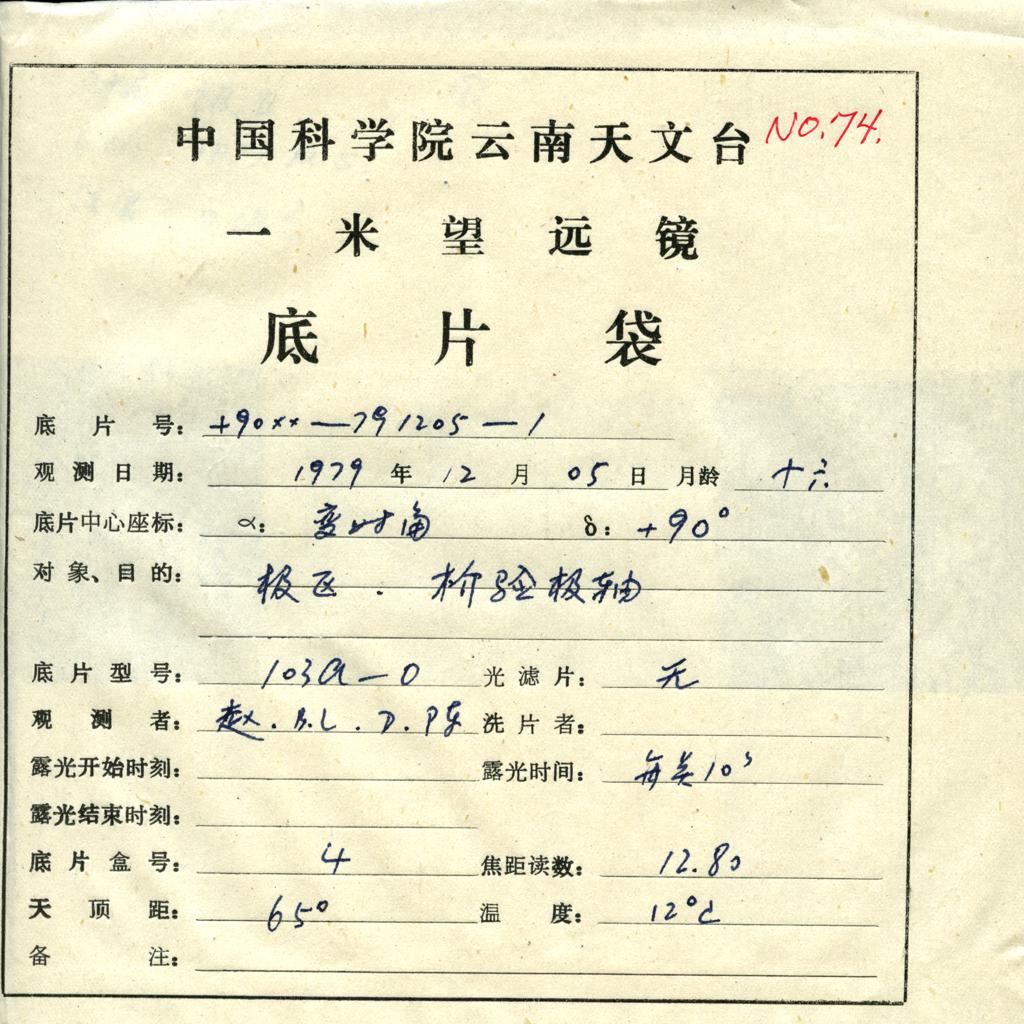 中国科学院云南天文台 NO.74.
一米望远镜
底片袋
底片号: +90xx—791205—1
观测日期: 1979年12月05日 月龄 十六
底片中心座标: α: 变时角 δ: +90°
对象、目的: 极区. 检验极轴
底片型号: 103a—O 光滤片: 无
观测者: 赵.B.L.D.陈 洗片者:
露光开始时刻: 露光时间: 每类10s
露光结束时刻:
底片盒号: 4 焦距读数: 12.80
天顶距: 65° 温度: 12°C
备注: